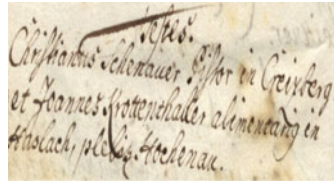 Testes.
Christianus Schenauer Pistor in Geisberg
et Joannes Krottenthaler alimentarig in
Haslach, plebis Hochenau.